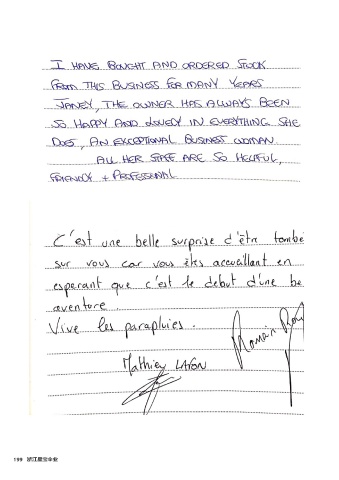 I HAVE BOUGHT AND ORDERED STOCK
FROM THIS BUSINESS FOR MANY YEARS
JANEY, THE OWNER HAS ALWAYS BEEN
SO HAPPY AND LOVELY IN EVERYTHING SHE
DOES, AN EXCEPTIONAL BUSINESS WOMAN.
ALL HER STAFF ARE SO HELPFUL,
FRIENDLY + PROFESSIONAL
C'est une belle surprise d'être tombé
sur vous car vous êtes accueillant en
esperant que c'est le debut d'une be
aventure.
Vive les parapluies.
Romain
Mathieu LAFON
199 浙江星宝伞业